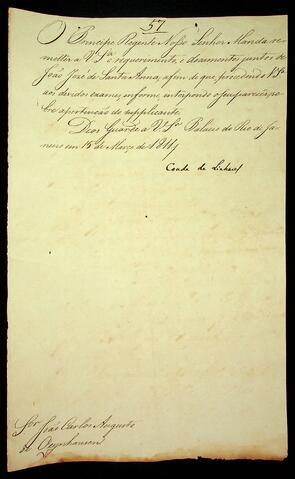 57
O Principe Regente Nosso Senhor Manda re-
metter a V. S.ª o requerimento, e documentos juntos de
João José de Santa Anna, afim de que, procedendo V. S.ª
aos devidos exames, informe, interpondo o seu parecer so-
bre a pertenção do supplicante.
Deos Guarde a V. S.ª Palacio do Rio de Ja-
neiro em 15 de Março de 1811
Conde de Linhares
Snr João Carlos Augusto
de Oeynhausen